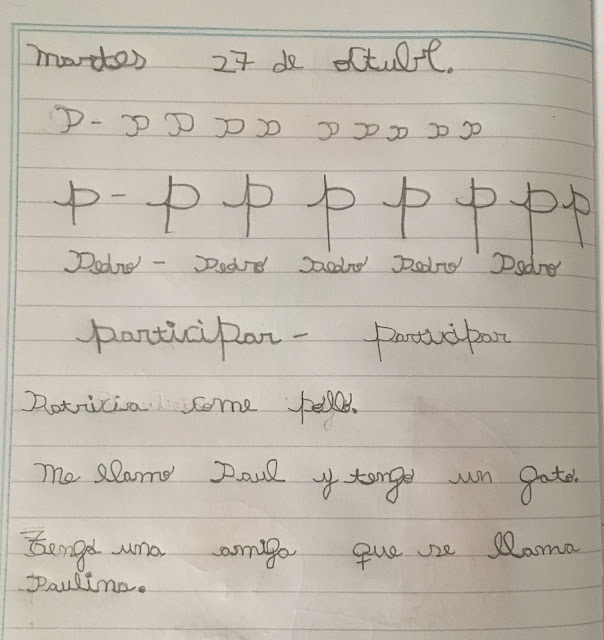 Martes 27 de octubre.
P - P P P P P P P P P
p - p p p p p p p
Pedro - Pedro Pedro Pedro Pedro
participar - participar
Patricia come pollo.
Me llamo Paul y tengo un gato.
Tengo una amiga que se llama
Paulina.